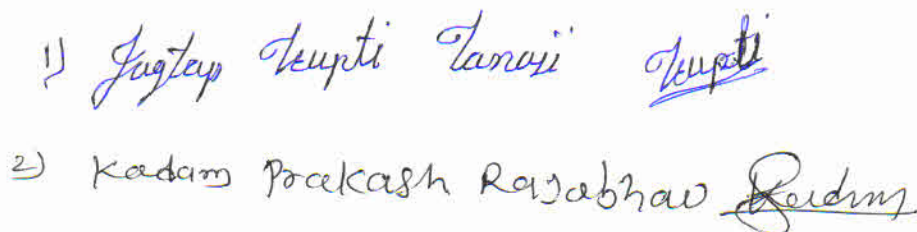 1) Jagtap Trupti Tanaji Trupti
2) Kadam Prakash Rajabhau